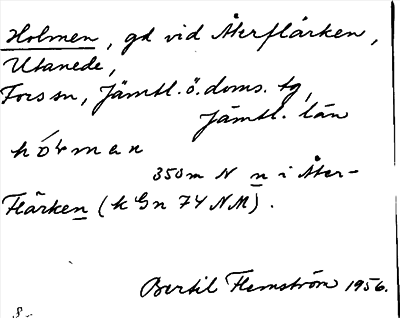 Holmen, gd vid Återflärken,
Utanede,
Fors sn, Jämtl. ö. doms. tg,
Jämtl. län
350 m N n i Åter-
flärken (k Gn 74 NM).
Bertil Flemström 1956.